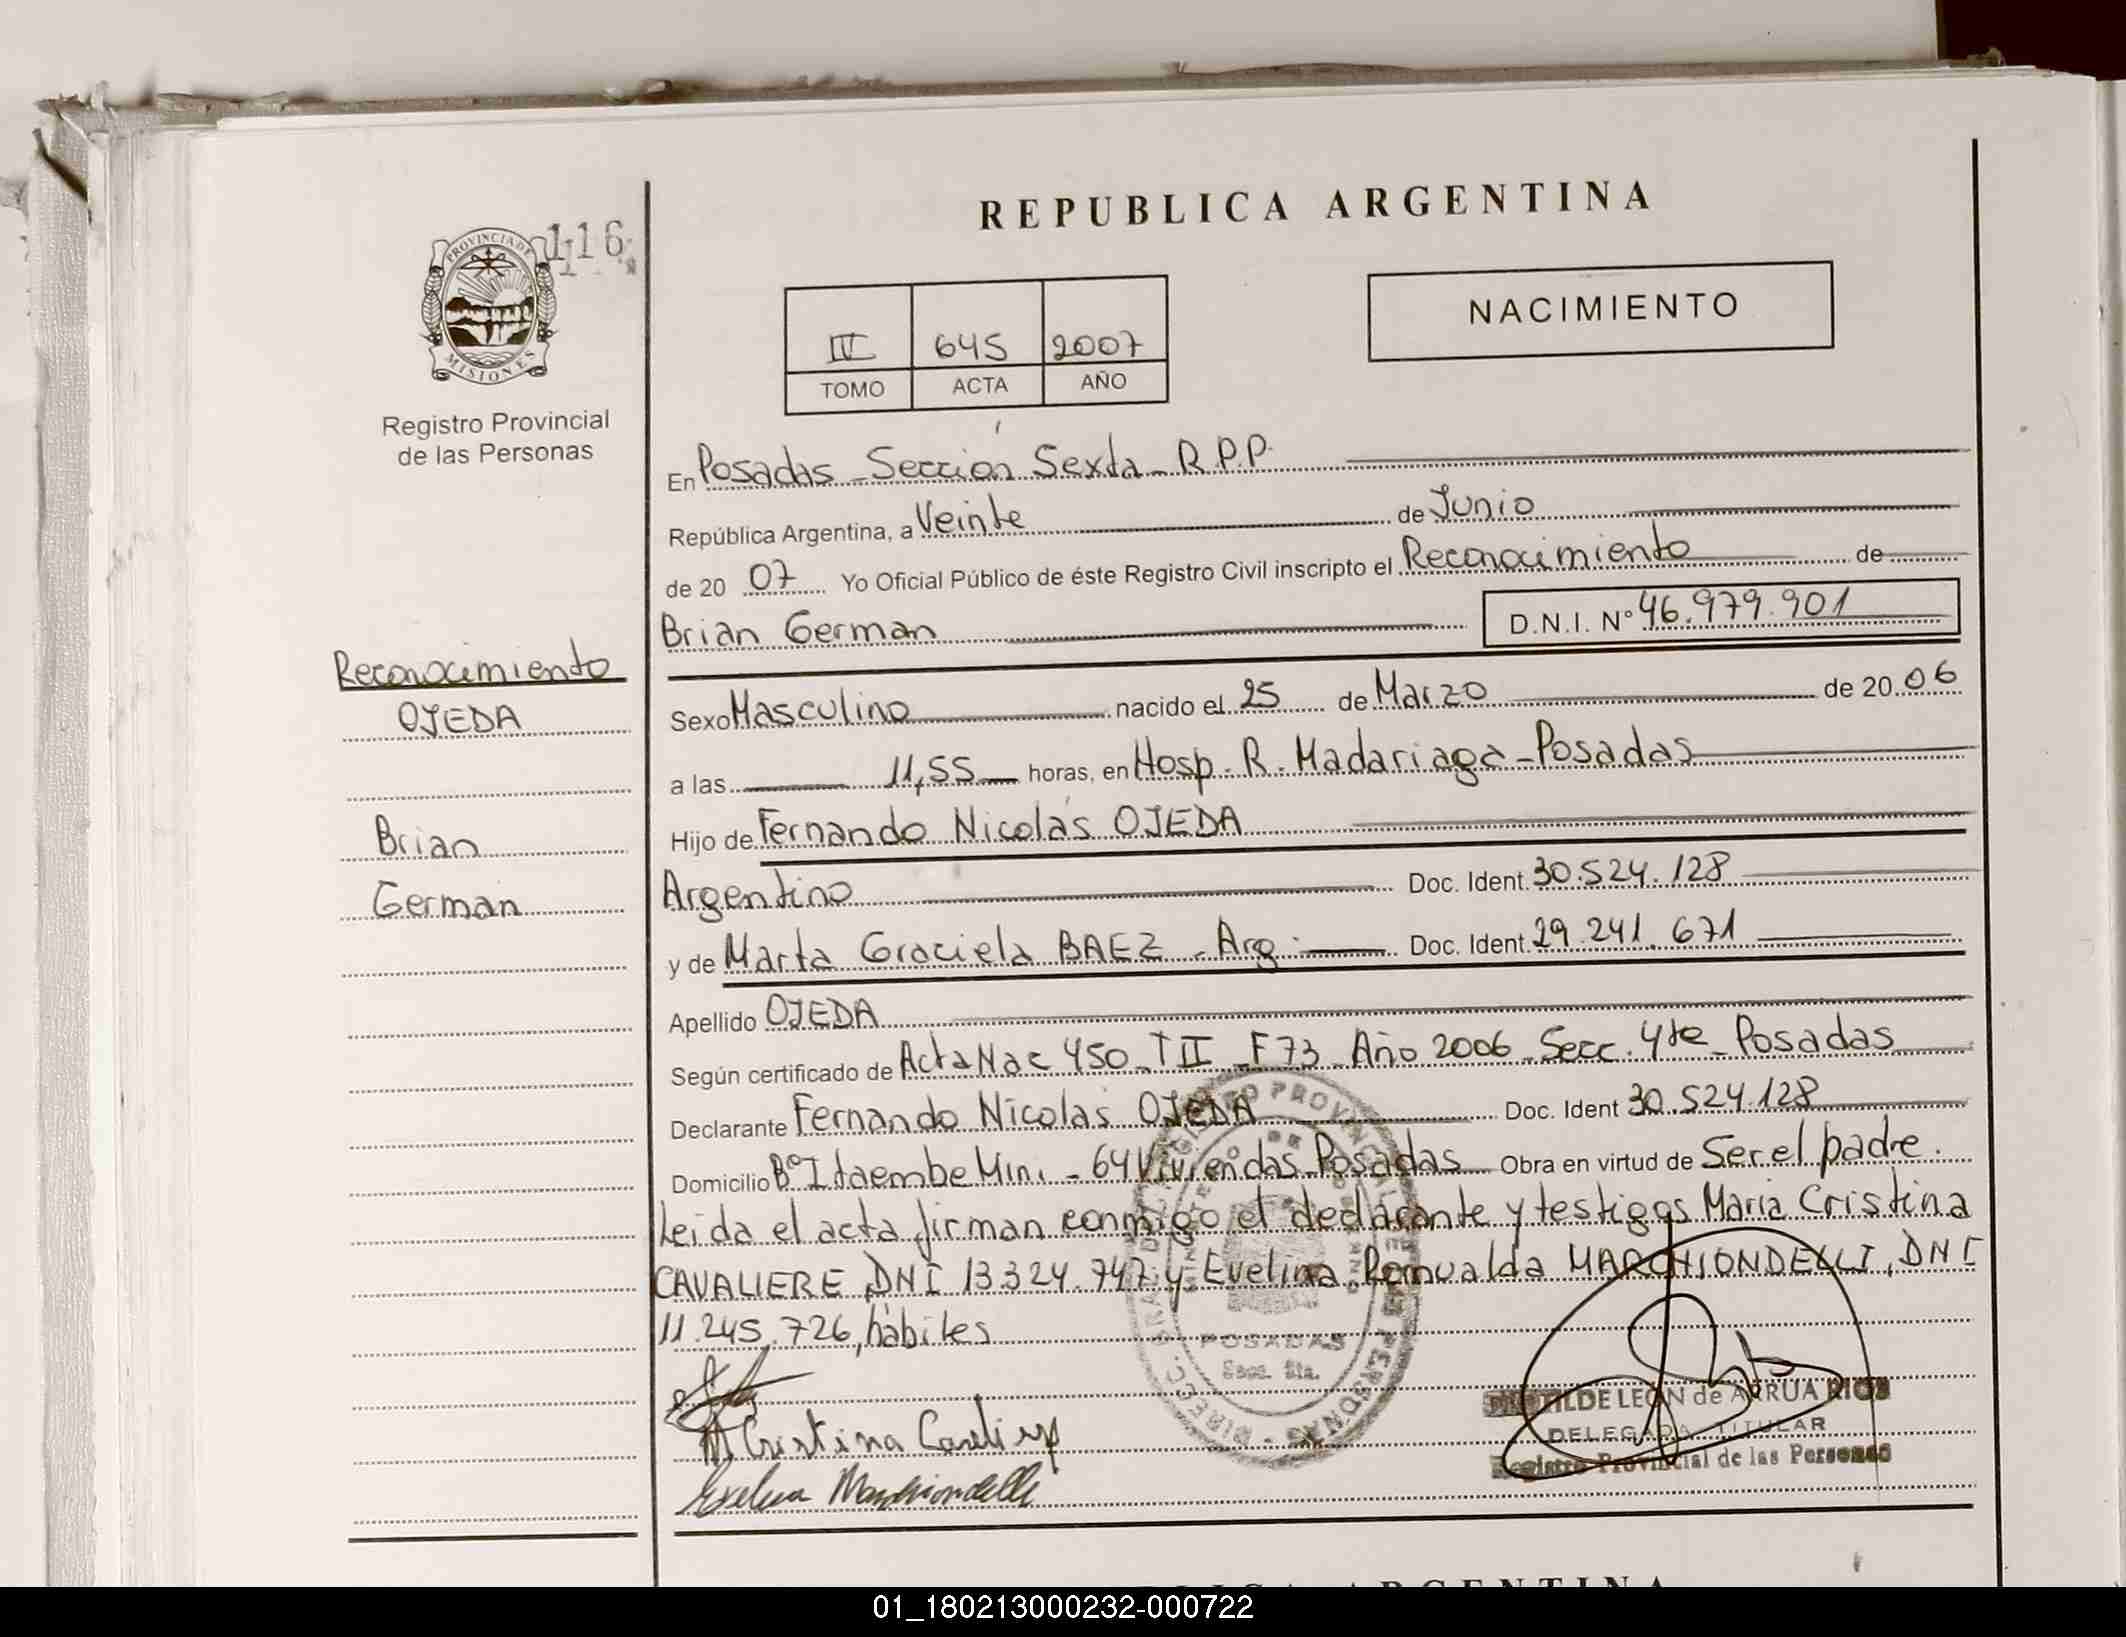 REPUBLICA ARGENTINA
116
PROVINCIA DE
MISIONES
Registro Provincial
de las Personas
III 645 2007
TOMO ACTA AÑO
NACIMIENTO
En Posadas - Sección Sexta - R.P.P.
República Argentina, a Veinte de Junio
de 20 07 Yo Oficial Público de éste Registro Civil inscripto el Reconocimiento de
Brian German D.N.I. Nº 46.979.901
Reconocimiento
OJEDA
Brian
German
Sexo Masculino nacido el 25 de Marzo de 20 06
a las 11,55 horas, en Hosp. R. Madariaga - Posadas
Hijo de Fernando Nicolás OJEDA
Argentino Doc. Ident. 30.524.128
y de Marta Graciela BAEZ - Arg. Doc. Ident. 29.241.671
Apellido OJEDA
Según certificado de Acta Nac 450 - T II - F 73 - Año 2006 - Secc. 4te - Posadas
Declarante Fernando Nicolás OJEDA Doc. Ident 30.524.128
Domicilio Bº Itaembe Mini - 64 Viviendas - Posadas Obra en virtud de Ser el padre.
Leida el acta firman conmigo el declarante y testigos Maria Cristina
CAVALIERE, DNI 13.324.747 y Evelina Romualda MARCHIONDELLI, DNI
11.245.726, hábiles
POSADAS
Secc. 6ta.
M Cristina Cavaliere
Evelina Marchiondelli
LEON de ARRUA RIOS
DELEGADA TITULAR
Registro Provincial de las Personas
ARGENTINA
01_180213000232-000722